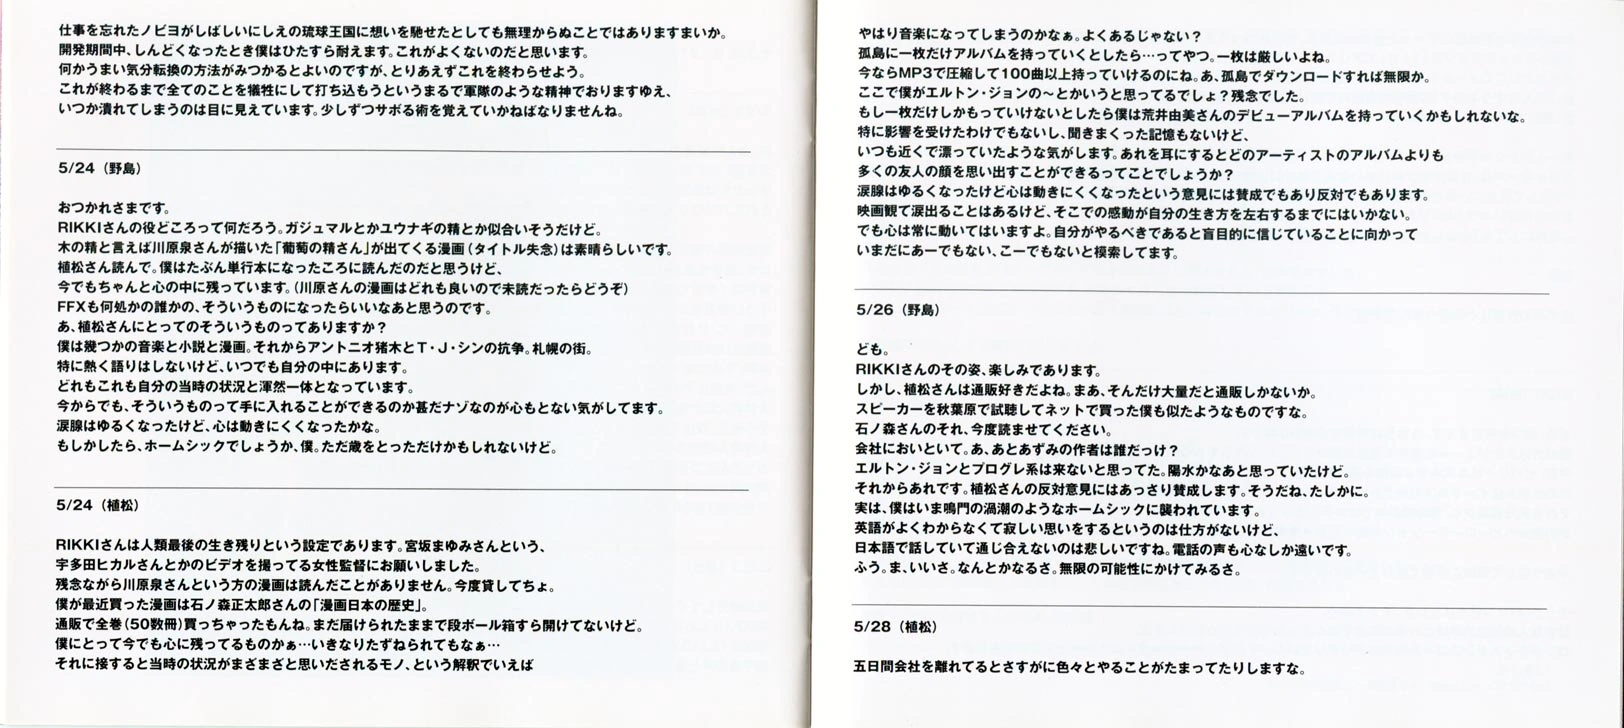 仕事を忘れたノビヨがしばしいにしえの琉球王国に想いを馳せたとしても無理からぬことではありますまいか。
開発期間中、しんどくなったとき僕はひたすら耐えます。これがよくないのだと思います。
何かうまい気分転換の方法がみつかるとよいのですが、とりあえずこれを終わらせよう。
これが終わるまで全てのことを犠牲にして打ち込もうというまるで軍隊のような精神でおりますゆえ、
いつか潰れてしまうのは目に見えています。少しずつサボる術を覚えていかねばなりませんね。
5/24（野島）
おつかれさまです。
RIKKIさんの役どころって何だろう。ガジュマルとかユウナギの精とか似合いそうだけど。
木の精と言えば川原泉さんが描いた「葡萄の精さん」が出てくる漫画（タイトル失念）は素晴らしいです。
植松さん読んで。僕はたぶん単行本になったころに読んだのだと思うけど、
今でもちゃんと心の中に残っています。（川原さんの漫画はどれも良いので未読だったらどうぞ）
FFXも何処かの誰かの、そういうものになったらいいなあと思うのです。
あ、植松さんにとってのそういうものってありますか？
僕は幾つかの音楽と小説と漫画。それからアントニオ猪木とT・J・シンの抗争。札幌の街。
特に熱く語りはしないけど、いつでも自分の中にあります。
どれもこれも自分の当時の状況と渾然一体となっています。
今からでも、そういうものって手に入れることができるのか甚だナゾなのが心もとない気がしてます。
涙腺はゆるくなったけど、心は動きにくくなったかな。
もしかしたら、ホームシックでしょうか、僕。ただ歳をとっただけかもしれないけど。
5/24（植松）
RIKKIさんは人類最後の生き残りという設定であります。宮坂まゆみさんという、
宇多田ヒカルさんとかのビデオを撮ってる女性監督にお願いしました。
残念ながら川原泉さんという方の漫画は読んだことがありません。今度貸してちょ。
僕が最近買った漫画は石ノ森正太郎さんの「漫画日本の歴史」。
通販で全巻（50数冊）買っちゃったもんね。まだ届けられたままで段ボール箱すら開けてないけど。
僕にとって今でも心に残ってるものかぁ…いきなりたずねられてもなぁ…
それに接すると当時の状況がまざまざと思いだされるモノ、という解釈でいえば
やはり音楽になってしまうのかなぁ。よくあるじゃない？
孤島に一枚だけアルバムを持っていくとしたら…ってやつ。一枚は厳しいよね。
今ならMP3で圧縮して100曲以上持っていけるのにね。あ、孤島でダウンロードすれば無限か。
ここで僕がエルトン・ジョンの～とかいうと思ってるでしょ？残念でした。
もし一枚だけしかもっていけないとしたら僕は荒井由美さんのデビューアルバムを持っていくかもしれないな。
特に影響を受けたわけでもないし、聞きまくった記憶もないけど、
いつも近くで漂っていたような気がします。あれを耳にするとどのアーティストのアルバムよりも
多くの友人の顔を思い出すことができるってことでしょうか？
涙腺はゆるくなったけど心は動きにくくなったという意見には賛成でもあり反対でもあります。
映画観て涙出ることはあるけど、そこでの感動が自分の生き方を左右するまでにはいかない。
でも心は常に動いてはいますよ。自分がやるべきであると盲目的に信じていることに向かって
いまだにあーでもない、こーでもないと模索してます。
5/26（野島）
ども。
RIKKIさんのその姿、楽しみであります。
しかし、植松さんは通販好きだよね。まあ、そんだけ大量だと通販しかないか。
スピーカーを秋葉原で試聴してネットで買った僕も似たようなものですな。
石ノ森さんのそれ、今度読ませてください。
会社においといて。あ、あとあずみの作者は誰だっけ？
エルトン・ジョンとプログレ系は来ないと思ってた。陽水かなあと思っていたけど。
それからあれです。植松さんの反対意見にはあっさり賛成します。そうだね、たしかに。
実は、僕はいま鳴門の渦潮のようなホームシックに襲われています。
英語がよくわからなくて寂しい思いをするというのは仕方がないけど、
日本語で話していて通じ合えないのは悲しいですね。電話の声も心なしか遠いです。
ふう。ま、いいさ。なんとかなるさ。無限の可能性にかけてみるさ。
5/28（植松）
五日間会社を離れてるとさすがに色々とやることがたまってたりしますな。